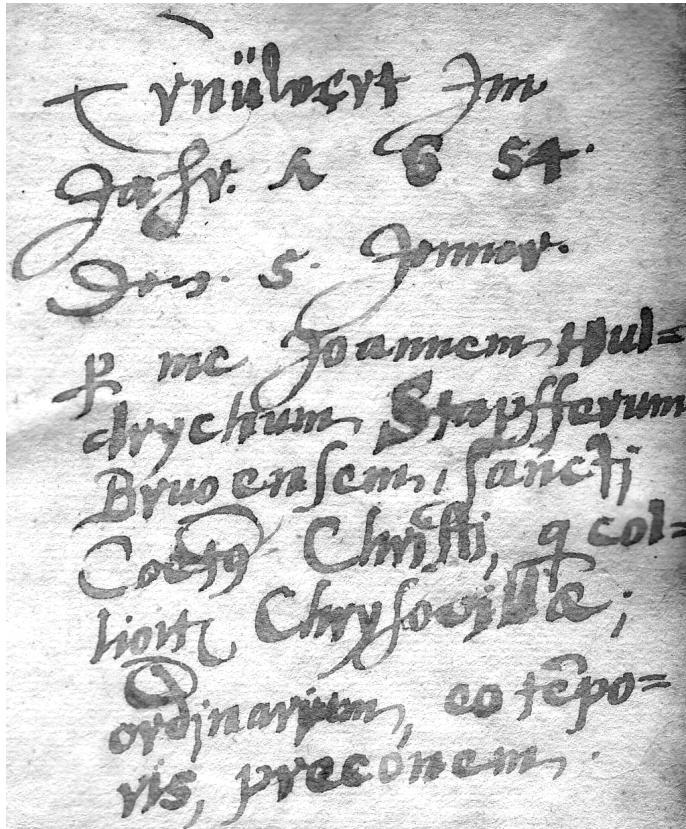 Ernüwert Im
Jahr. 1 6 54.
Den. 5. Jenner.
ꝑ me Joannem Hul=
drychum Stapfferum
Bruoensem, sancti
Coetꝰ Christi, q col=
Chrysovillæ;
ordinarium, eo tēpo=
ris, preconem.